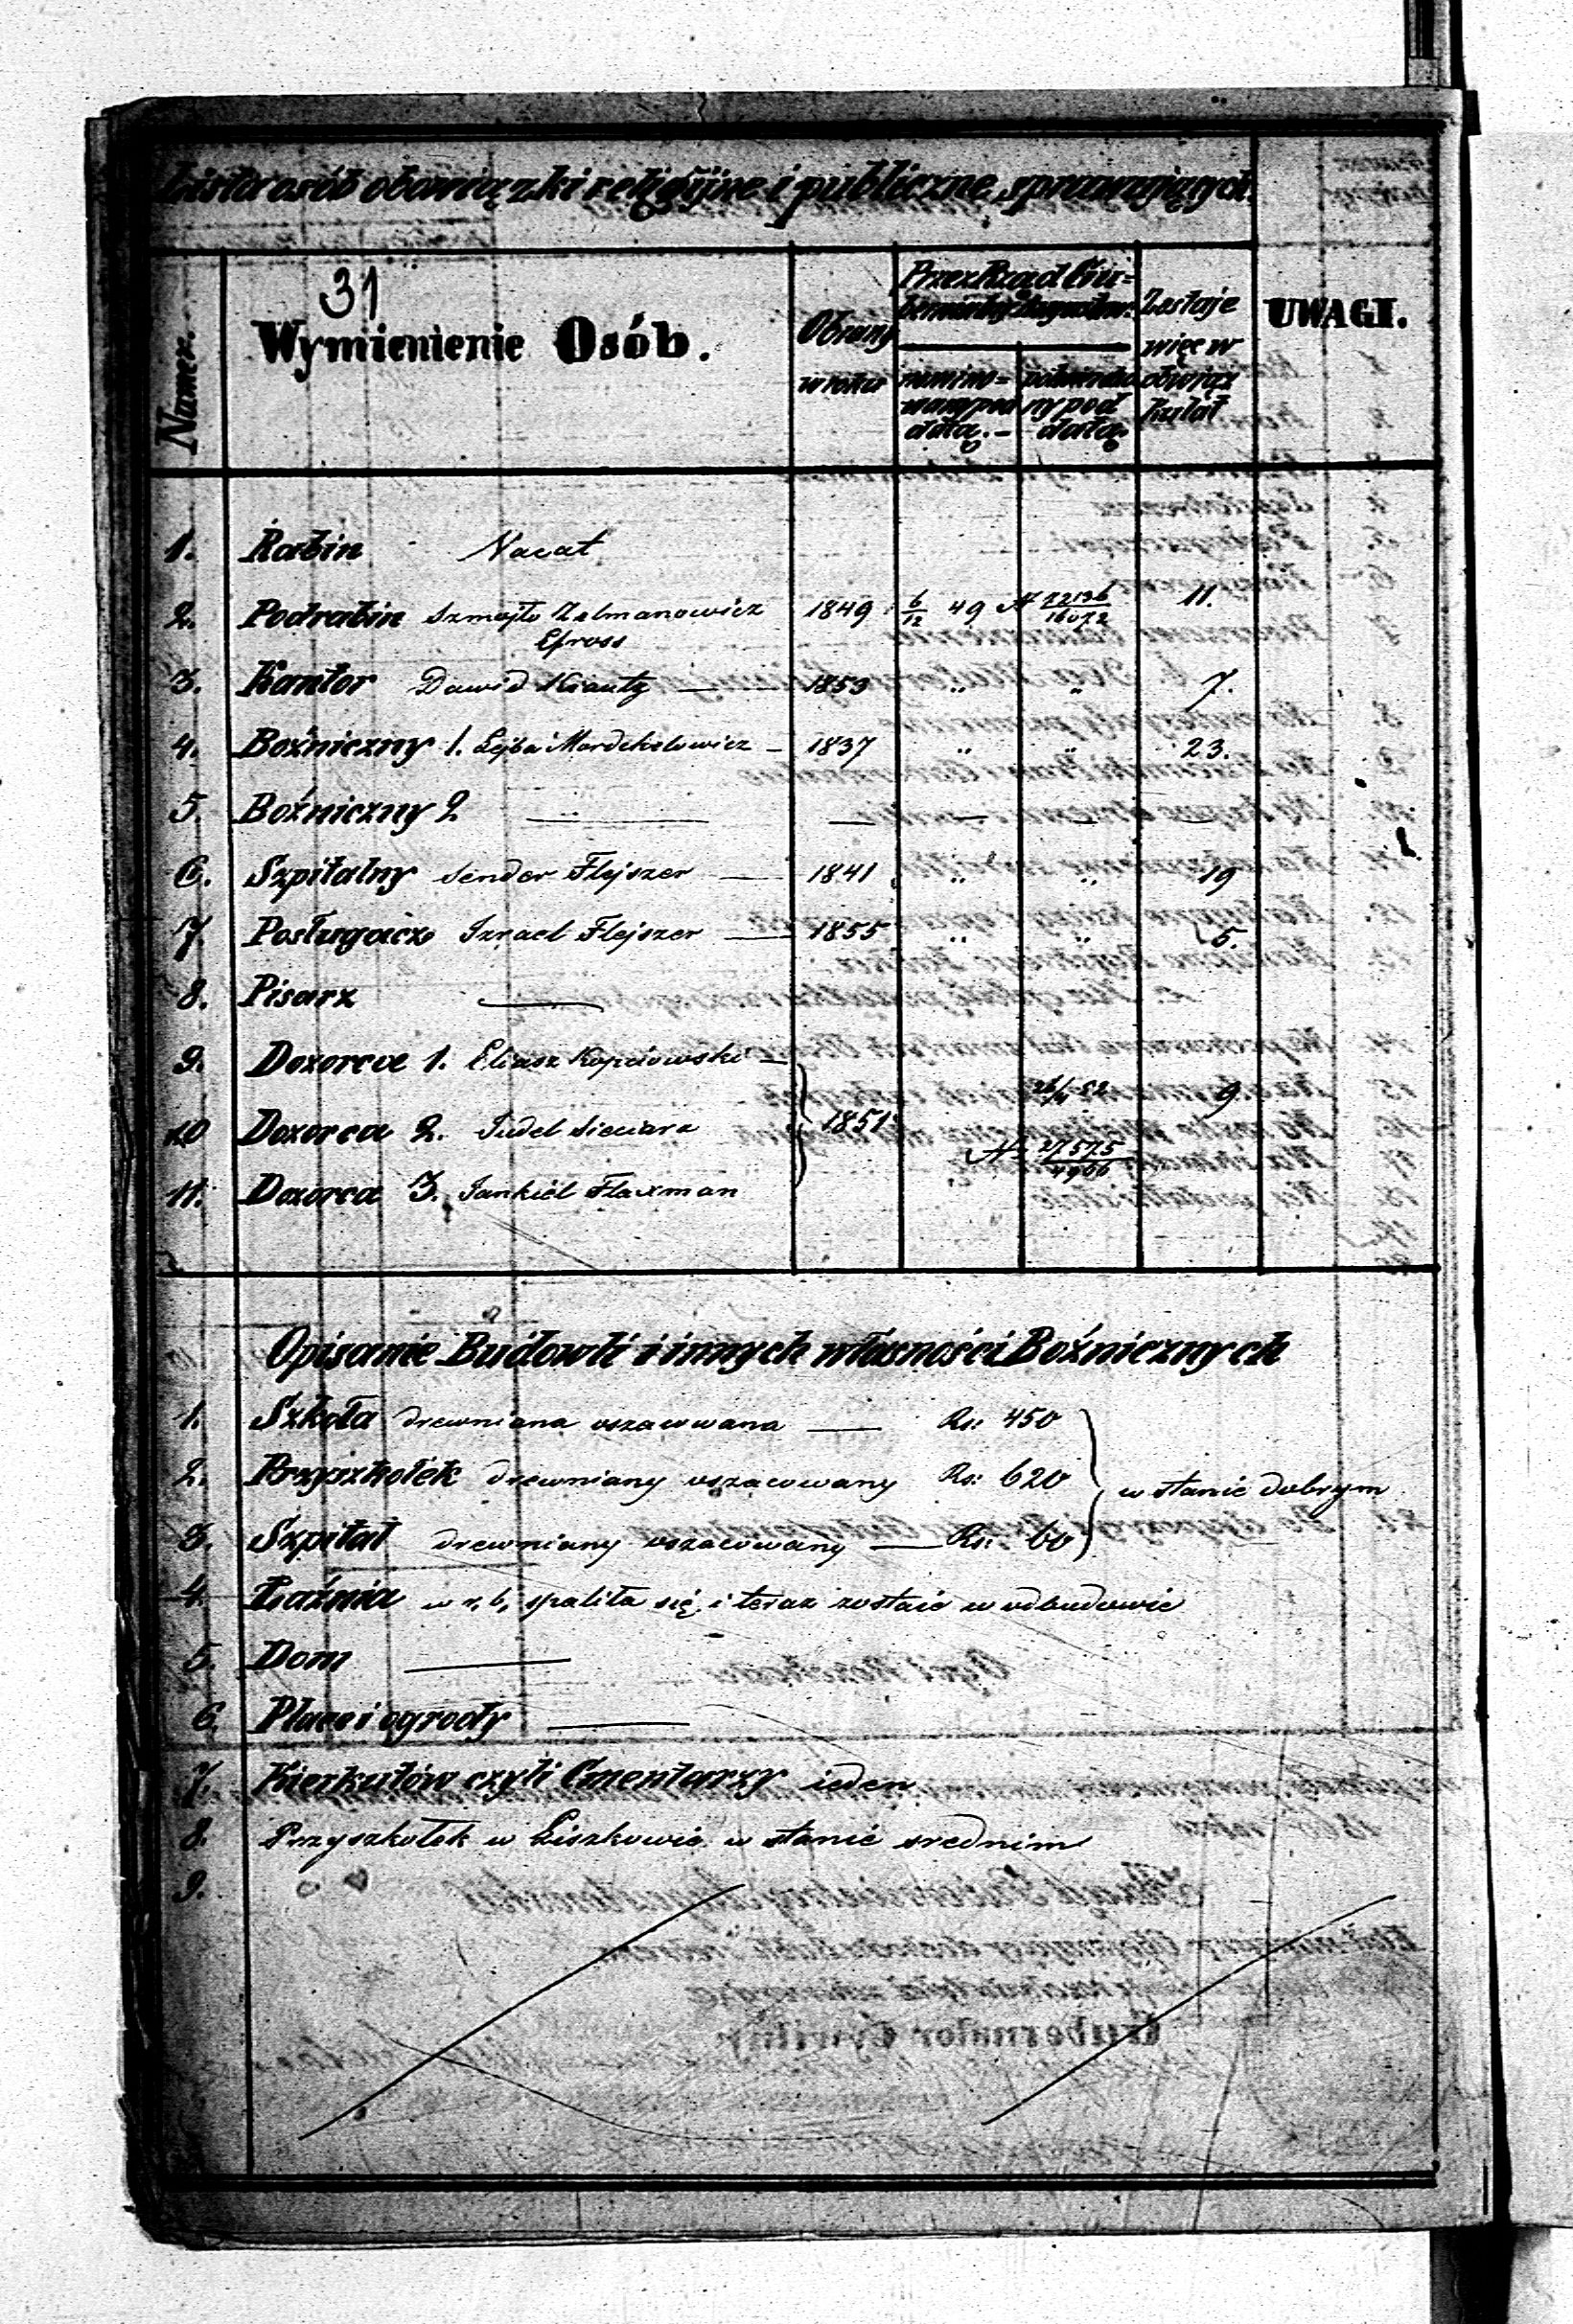 Lista osób obowiązki religijne i publiczne sprawujących.
31
Numer.
Wymienienie Osób.
Obrany w roku
Przez Rząd Gubernialny Augustow:
nominowany pod datą.
potwierdzony pod datą
Zostaje więc w obowiąz ku lat
UWAGI.
1. Rabin Vacat
2. Podrabin Szmojło Zelmanowicz 1849 6/12 49 N 72196/16072 11.
Efross
3. Kantor Dawid Krantz — 1853 " " 7.
4. Bożniczny 1. Lejba Mordchelowicz – 1837 " " 23.
5. Bożniczny 2 — — — — —
6. Szpitalny Sender Flejszer — 1841 " " 19
7. Posługacz Izrael Flejszer — 1855 " " 5.
8. Pisarz —
9. Dozorca 1. Eliasz Kopciowski —
10 Dozorca 2. Judel Siewarz 1851 9
N 27575/4966
11. Dozorca 3. Jankiel Flaxman
Opisanie Budowli i innych własności Bożnicznych
1. Szkoła drewniana oszacowana — Rs: 450
2. Przyszkołek drewniany oszacowany Rs: 620 w stanie dobrym
3. Szpital drewniany oszacowany — Rs: 60
4. Łaźnia w r. b. spaliła się i teraz zostaie w odbudowie
5. Dom —
6. Place i ogrody —
7. Kierkutów czyli Cmentarzy ieden
8. Przyszkołek w Liszkowie w stanie srednim
9.